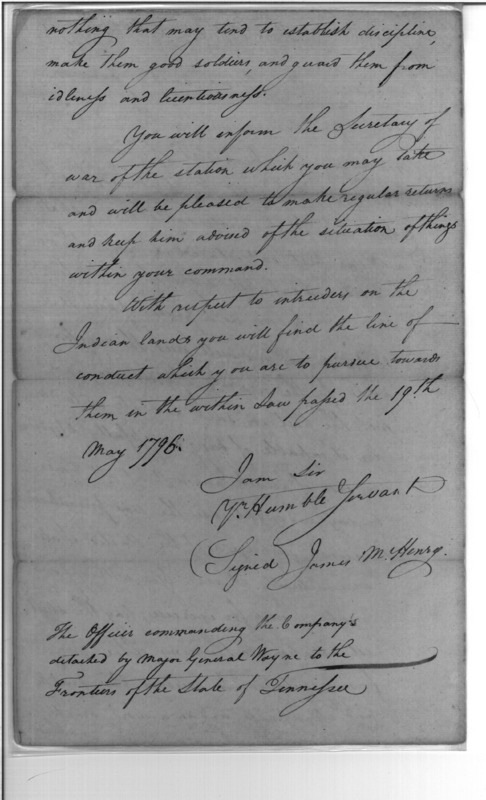 nothing that may tend to establish discipline,
make them good soldiers, and guard them from
idleness and licentiousness.
You will inform the Secretary of
war of the station which you may take
and will be pleased to make regular returns
and keep him advised of the situation of things
within your command.
With respect to intruders on the
Indian lands you will find the line of
conduct which you are to pursue towards
them in the within Law passed the 19th
May 1796.
I am Sir
Yr. Humble Servant
(Signed) James McHenry.
The Officer commanding the Company's
detached by Major General Wayne to the
Frontiers of the State of Tennessee